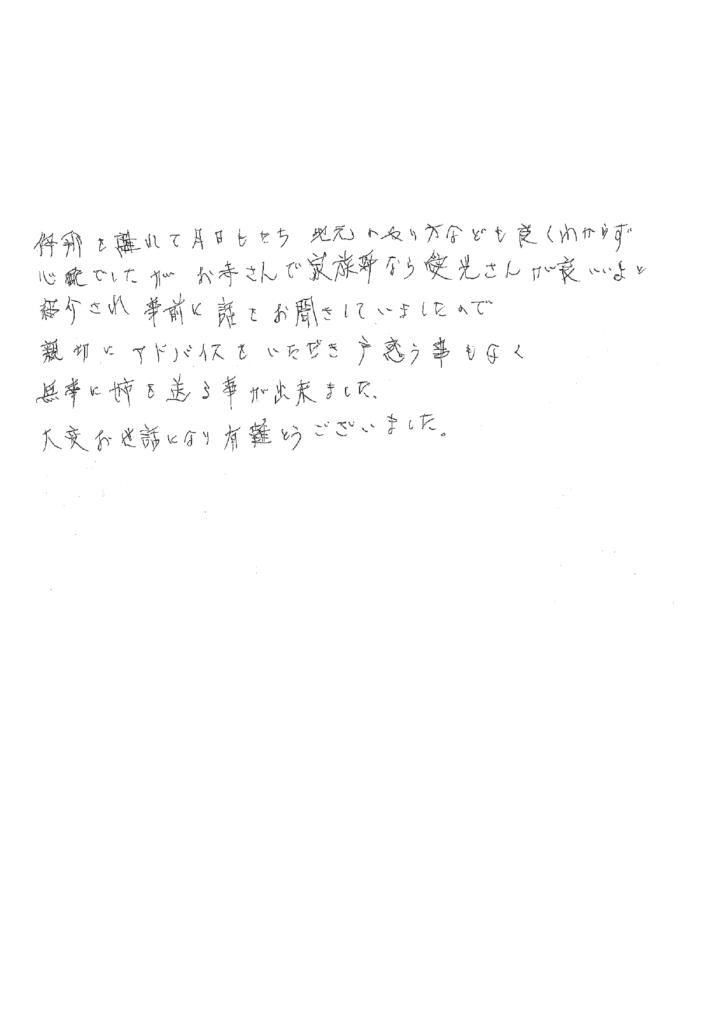 伊那を離れて月日もたち 地元のやり方なども良くわからず
心配でしたが お寺さんで家族葬なら愛光さんが良いよと
紹介され 事前に話をお聞きしていましたので
親切にアドバイスをいただき戸惑う事もなく
無事に姉を送る事が出来ました、
大変お世話になり有難とうございました。